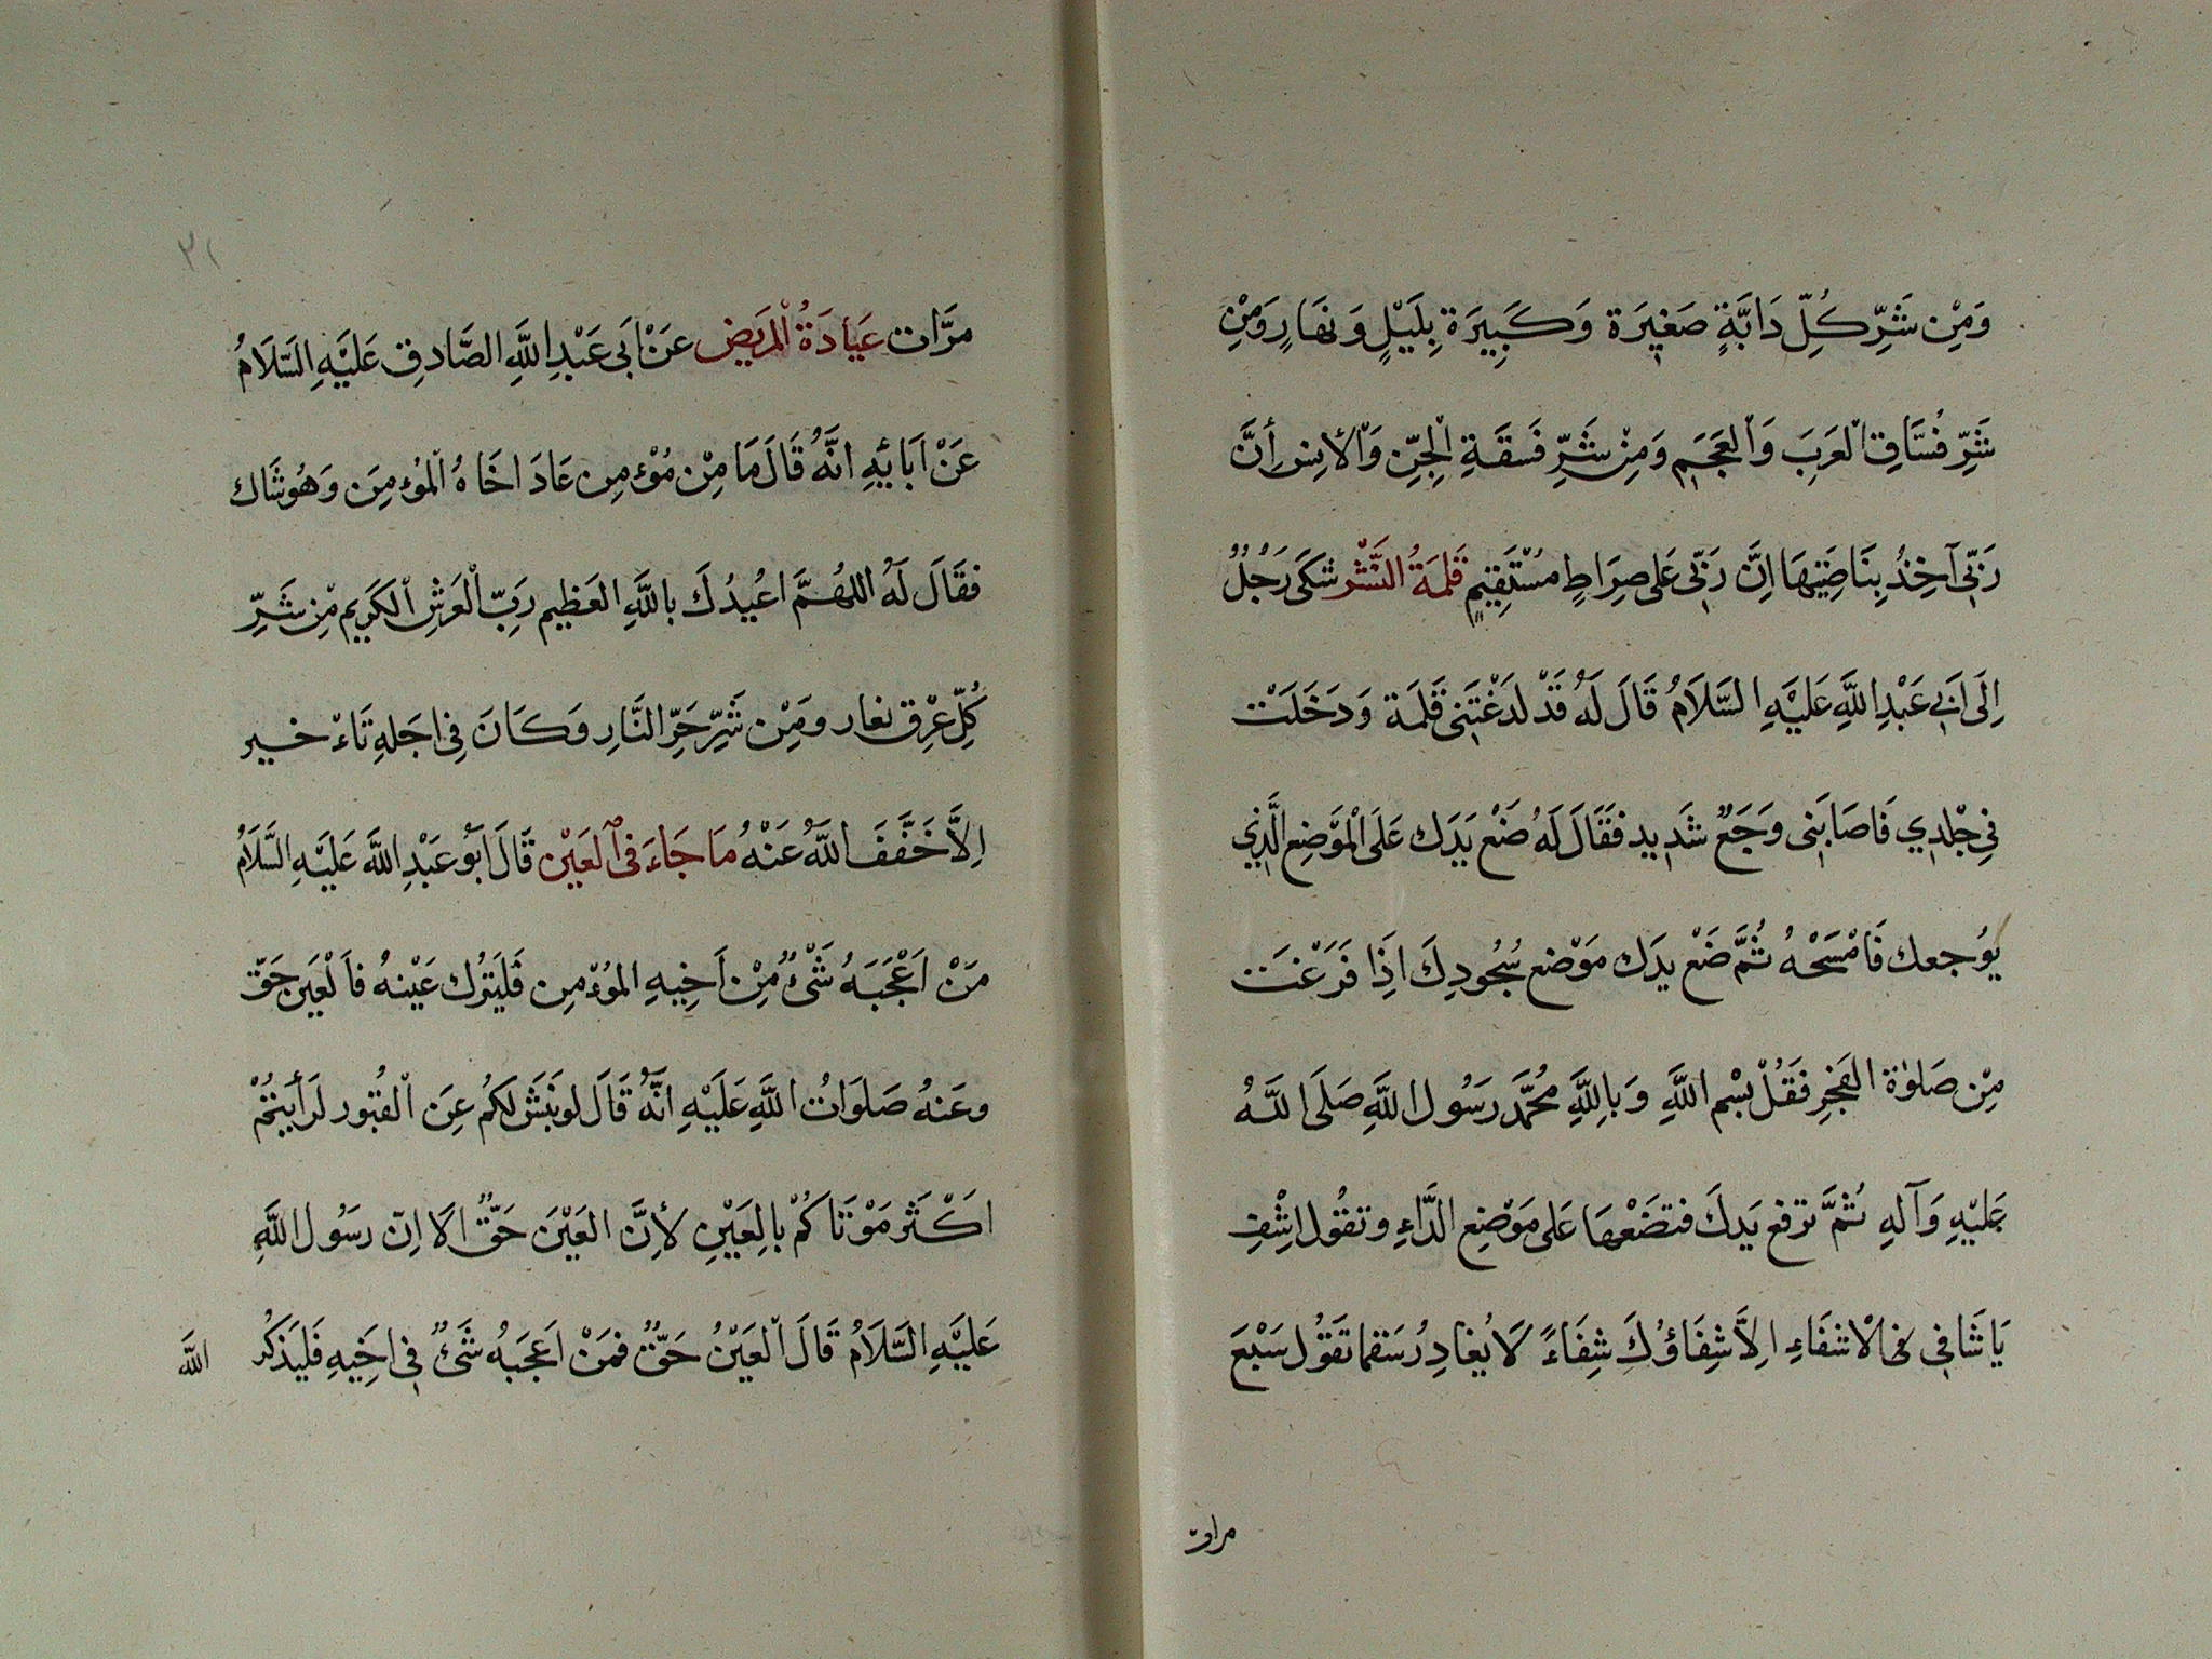 وَمِنْ شَرِّ كُلِّ دَابَّةٍ صَغِيرَة وَكَبِيرَة بِلَيْلٍ وَنَهَارٍ وَمِنْ
شَرِّ فُسَّاقِ الْعَرَبَ وَالْعَجَمِ وَمِنْ شَرِّ فَسَقَةِ الْجِنِّ وَالْأِنس أِنَّ
رَبِّى آخِذٌ بِنَاصِيَتِهَا اِنَّ رَبِّى عَلى صِرَاطٍ مُسْتَقِيمٍ قَلمَةُ النَّسْر شَكَى رَجُلٌ
اِلَى اَبِى عَبْدِ اللَّهِ عَلَيْهِ السَّلَامُ قَالَ لَهُ قَدْ لَدَغْتَنى قَلمَة وَدَخَلَتْ
فِى جْلدِي فَاصَابَنِى وَجَعٌ شَدِيد فَقَالَ لَهُ ضَعْ يَدَك عَلَى الْمَوْضِعِ الَّذِي
يُوجعك فَامْسَحْهُ ثُمَّ ضَعْ يدَك مَوْضع سُجُودِكَ اِذَا فَرَغْتَ
مِنْ صَلوٰة الفَجْرِ فَقُلْ بسْم اللَّهِ وَبِاللَّهِ مُحَمَّد رَسُول اللَّهِ صَلَى اللَّهُ
عَلَيْهِ وَآلهِ ثُمَّ ترفع يَدكَ فتضَعْهَا عَلى مَوْضِع الدَّاءِ وتقُول اشْفِ
يَا شَافِى فى لاشفَاءِ اِلاَّ شِفَاؤُكَ شِفَاءً لَا يُغادِرُ سَقما تَقُول سَبْعَ
مرات
مرَّات عَيَادَةُ الْمَريض عَنْ اَبى عَبْدِ اللَّهِ الصَّادِق عَلَيْهِ السَّلَامُ
عَنْ آبَائِهِ انَّهُ قَالَ مَا مِنْ مُؤمِن عَادَ اخَاهُ الْمُؤمِنَ وَهُوشَاك
فقَالَ لَهُ اللهُمَّ اعُيذُكَ باللَّهِ العَظيم رَبِّ الْعَرْشِ الْكَرِيم مِن شَرِّ
كُلِّ عِرْق نعار وَمِنْ شَرِّ حَرِّ النَّارِ وَكَانَ فِى اجَلهِ تَاءْ خير
اِلاَّ خَفَّفَ اللَّهُ عَنْهُ مَا جَاءَ فِى الْعَيْن قَالَ اَبُو عَبْدِ اللَّه عَلَيْهِ السَّلَامُ
مَنْ اَعْجَبَهُ شَىْءٌ مِنْ اَخِيهِ المُؤمِن فَليَترُك عَيْنهُ فَالْعَين حَقّ
وعَنهُ صَلَوَاتُ اللَّهِ عَلَيْهِ انَّهُ قَالَ لو نبَش لكمُ عِن الْقُبُور لرَأيتُمْ
اكْثَر مَوْتَاكمُ بالِعَيْنِ لأِنَّ العَيْنَ حَقٌّ الَا اِنَّ رسُول اللَّهِ
عَليْهِ السَّلَامُ قَالَ الْعَيْنُ حَقٌّ فمَنْ اعَجَبَهُ شَىٌ فِى اخِيهِ فَليَذكُر
اللَّه
٣١